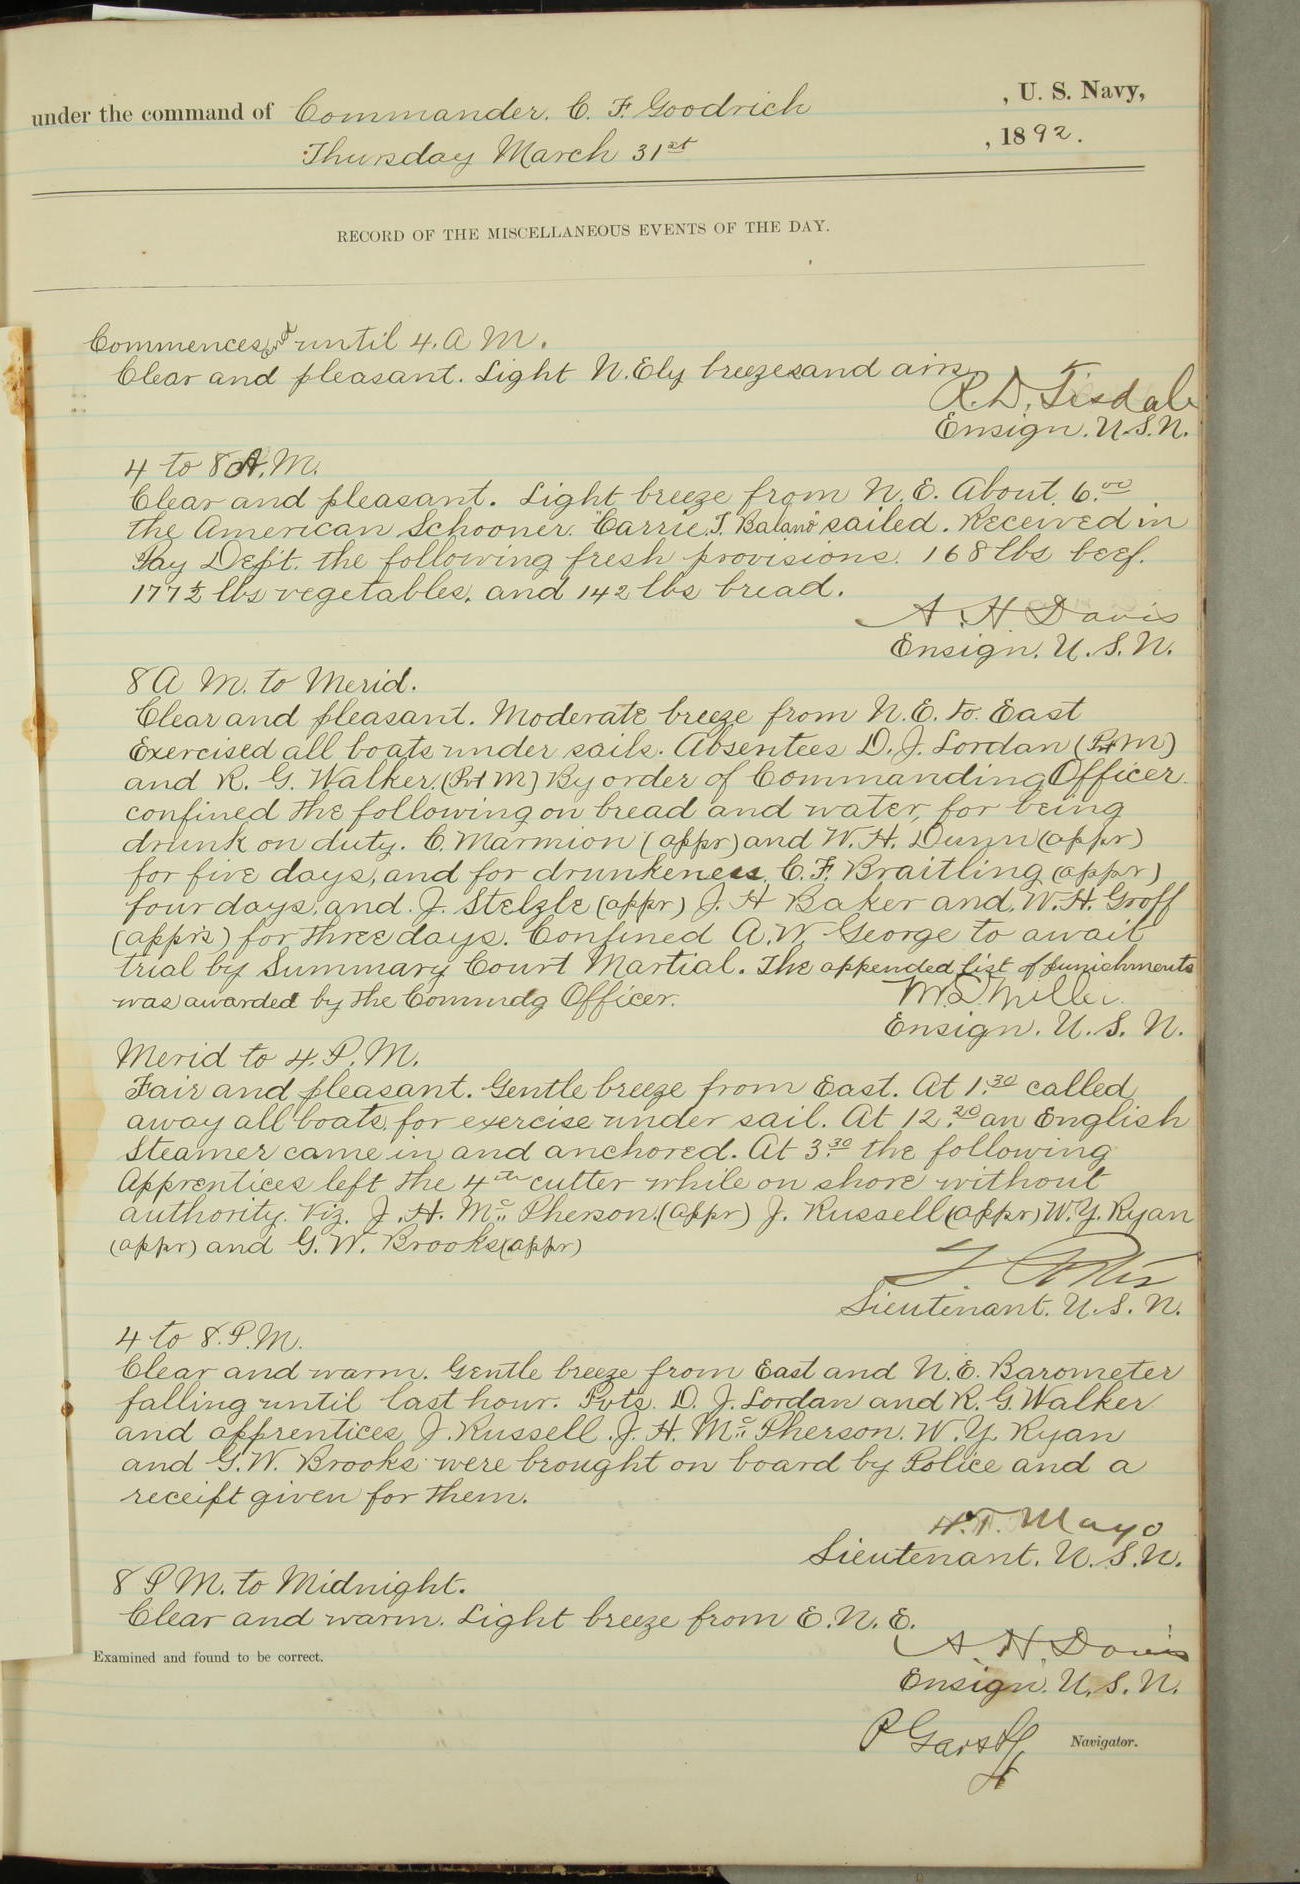 under the command of Commander. C. F. Goodrich , U. S. Navy,
Thursday March 31st , 1892.
RECORD OF THE MISCELLANEOUS EVENTS OF THE DAY.
Commences and until 4. A M.
Clear and pleasant. Light N.Ely breezes and airs.
R. D. Tisdale
Ensign. U.S.N.
4 to 8 A.M.
Clear and pleasant. Light breeze from N.E. About 6.00
the American Schooner. "Carrie. T. Balano" sailed. Received in
Pay Dep't. the following fresh provisions. 168 lbs beef.
177½ lbs vegetables. and 142 lbs bread.
A. H Davis
Ensign. U.S.N.
8 A M. to Merid.
Clear and pleasant. Moderate breeze from N.E. to East
Exercised all boats under sails. Absentees D. J. Lordan (Pvt M)
and R. G. Walker. (Pvt M) By order of Commanding Officer
confined the following on bread and water, for being
drunk on duty. C. Marmion (appr) and W. H. Dunn (appr)
for five days, and for drunkeness. C. F. Braitling (appr)
four days, and. J. Stelzle (appr) J. H Baker and, W. H. Groff
(appr's) for three days. Confined A. W. George to await
trial by Summary Court Martial. The appended list of punishments
was awarded by the Commdg Officer.
M. Miller
Ensign. U. S. N.
Merid to 4. P. M.
Fair and pleasant. Gentle breeze from East. At 1.30 called
away all boats, for exercise under sail. At 12.20 an English
Steamer came in, and anchored. At 3.30 the following
Apprentices left the 4th cutter while on shore without
authority. Viz. J. H. Mc Pherson. (appr) J. Russell (appr) W. Y. Ryan
(appr) and G. W. Brooks (appr)
Lieutenant. U.S.N.
4 to 8. P.M.
Clear and warm. Gentle breeze from East and N.E. Barometer
falling until last hour. Pvts. D. J. Lordan and R. G. Walker
and apprentices, J. Russell. J. H. Mc Pherson. W. Y. Ryan
and G. W. Brooks were brought on board by Police and a
receipt given for them.
H. T. Mayo
Lieutenant. U.S.N.
8 P M. to Midnight.
Clear and warm. Light breeze from E.N.E.
A. H. Davis
Examined and found to be correct.
Ensign. U.S.N.
P Garst
Navigator.